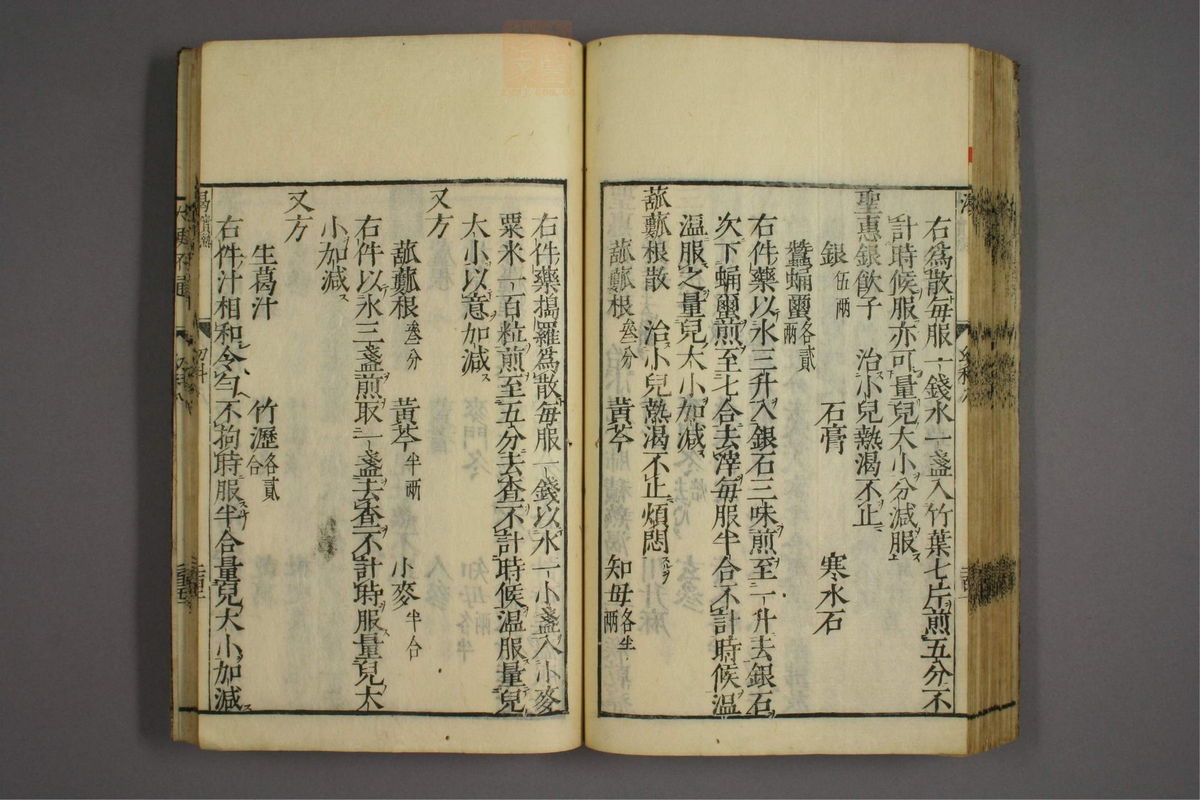 右爲散每服一錢水一盞入竹葉七片煎五分不
計時候服亦可量兒大小分減服
聖惠銀飲子　治小兒熱渴不止
銀伍兩　石膏　寒水石
蠶蛹蠒各貳兩
右件藥以水三升入銀石三味煎至二升去銀石
次下蛹蠒煎至七合去滓每服半合不計時候温
温服之量兒大小加減
蓏蔕根散　治小兒熱渴不止煩悶
根叁分　黃芩　知母各半兩
右件藥搗羅爲散每服一錢以水一小盞入小麥
粟米一百粒煎至五分去查不計時候温服量兒
太小以意加減
又方
根叁分　黃芩半兩　小麥半合
右件以水三盞煎取一盞去查不計時服量兒大
小加減
又方
生葛汁　竹瀝各貳合
右件汁相和令勻不拘時服半合量兒大小加減